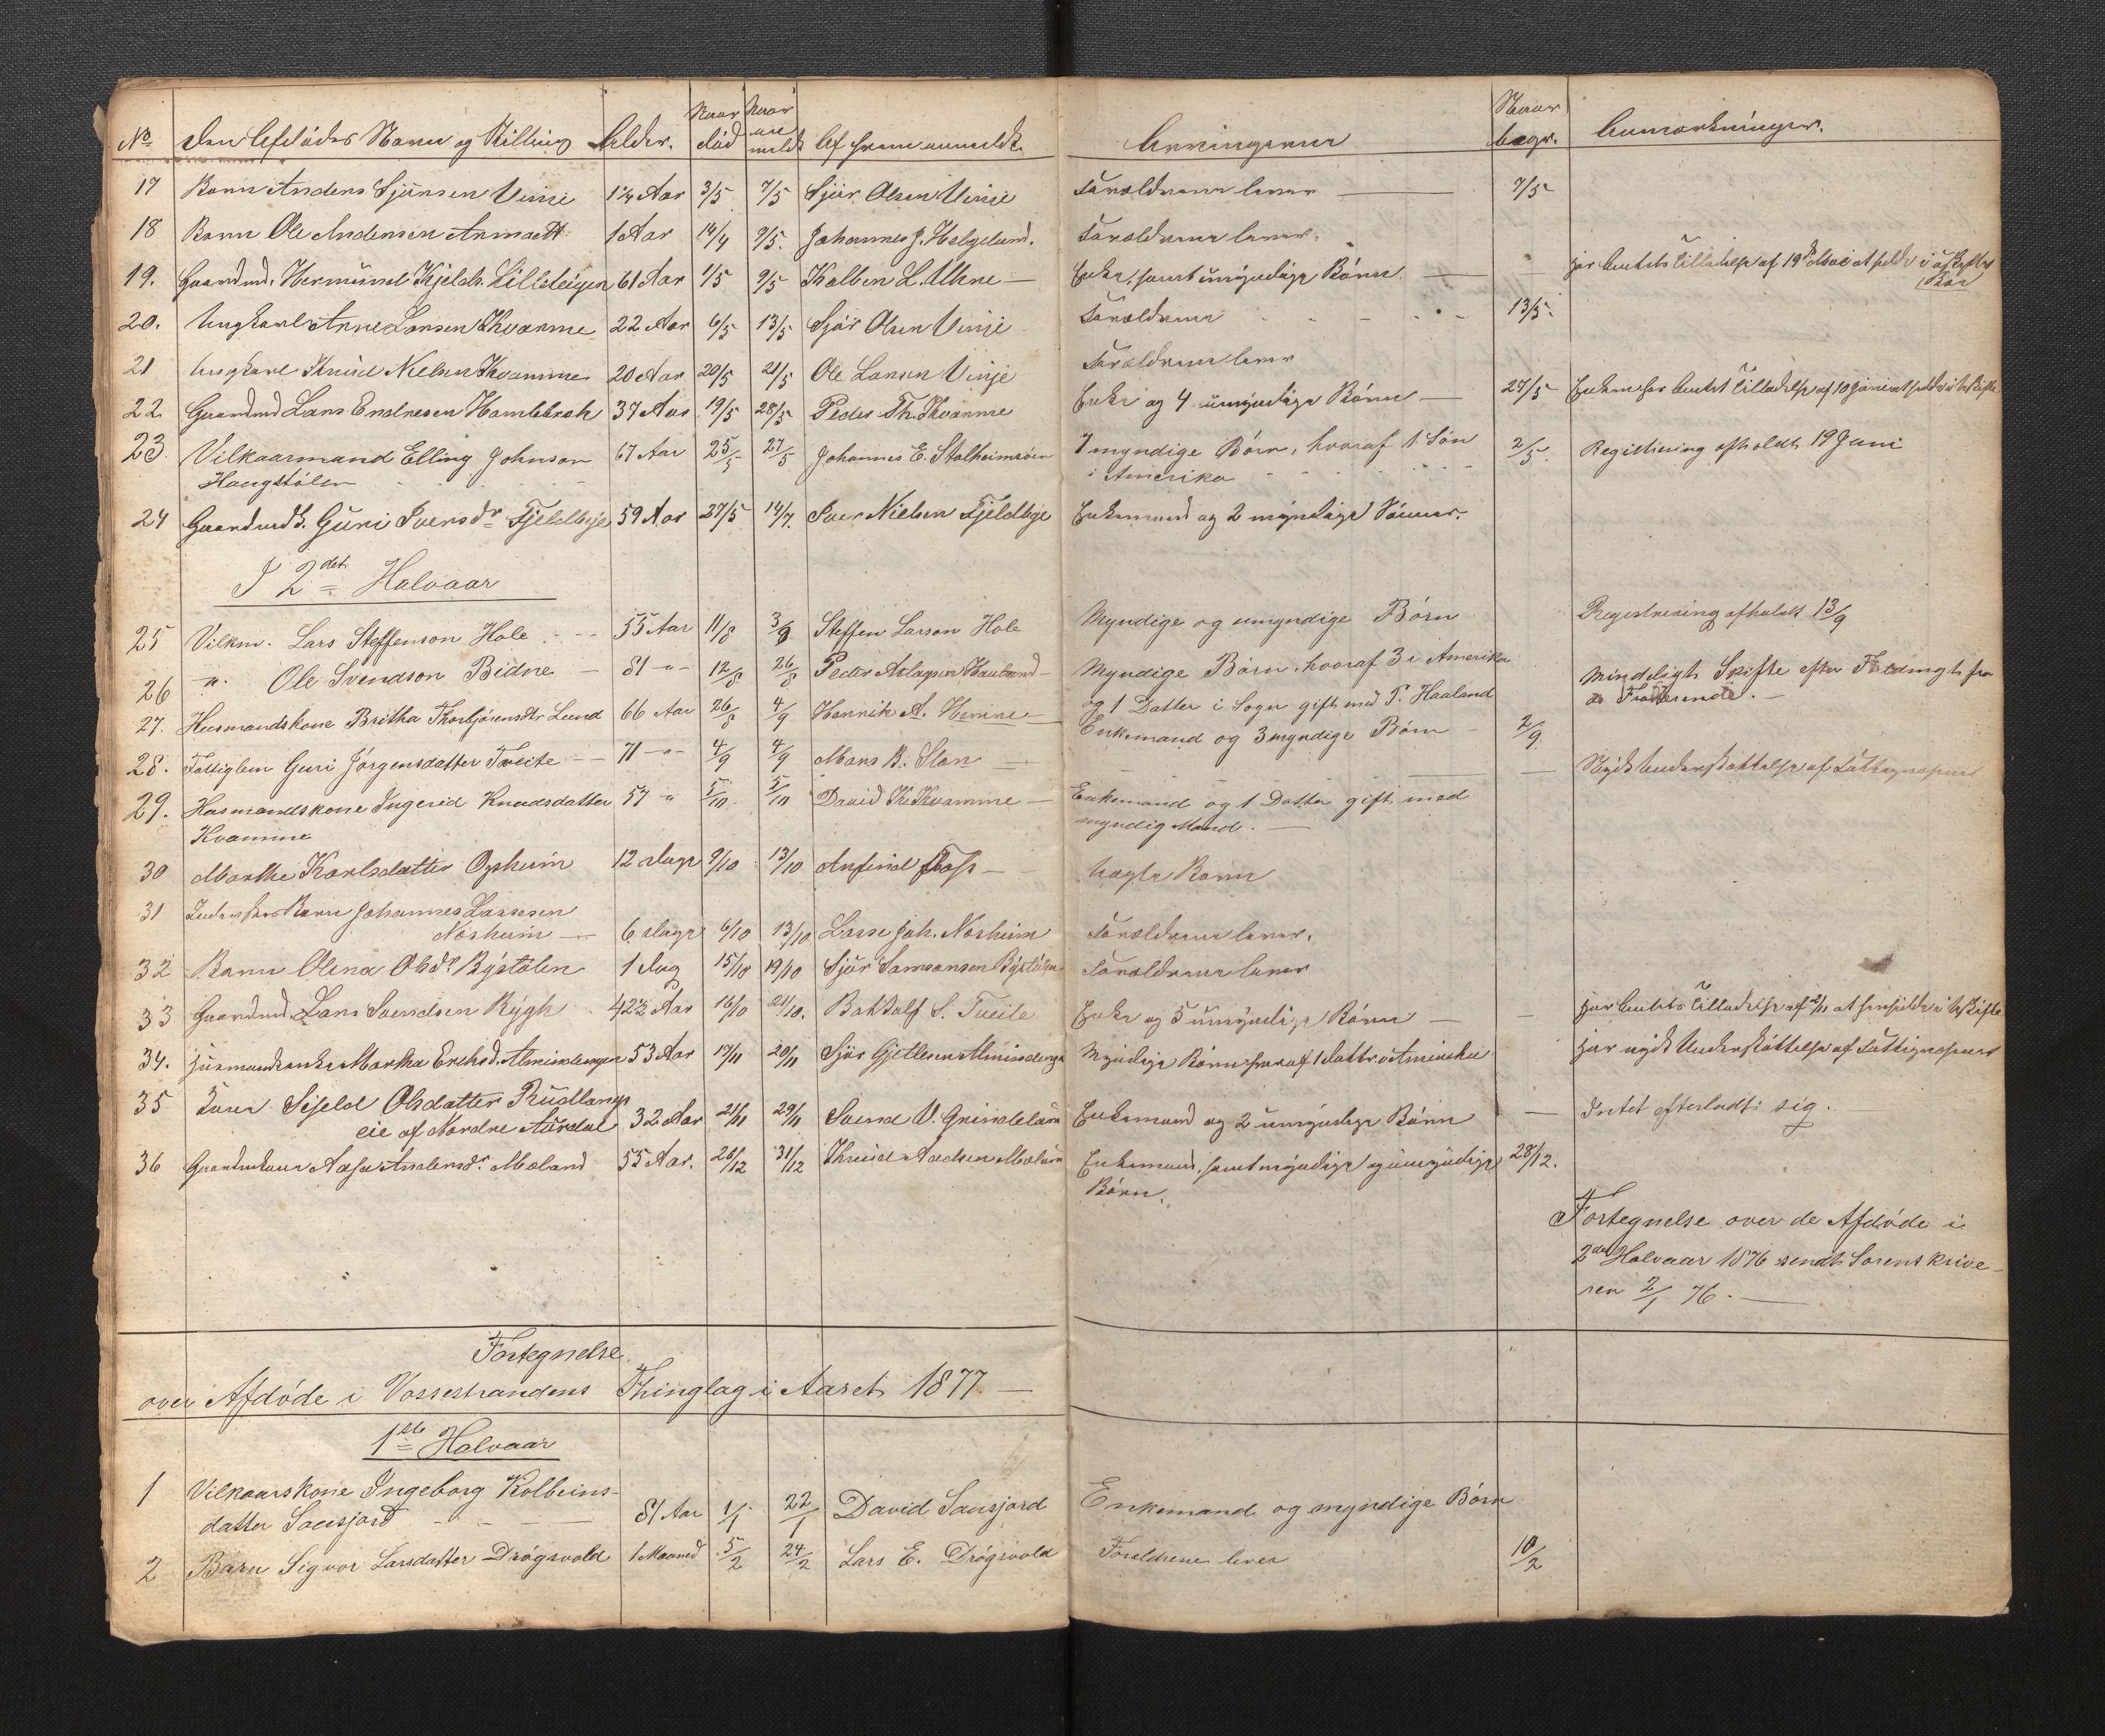 No Den Afdødes Navn og Stilling Alder. Naar død Naar anmeldt Af hvem anmeldt. Arvingerne Naar begr. Anmærkninger.
17 Barn Anders Sjursen Vinje 1 1/4 Aar 3/5 7/5 Sjur Olsen Vinje Forældrene lever — 7/5
18 Barn Ole Andersen 1 Aar 14/4 9/5. Johannes J. Helgeland. Forældrene lever.
19. Gaardmd. Hermund Kjelds. Lilleteigen 61 Aar 1/5 9/5 Kolben L. — Enke, samt umyndige Børn — — har Amtets Tilladelse af 19de Mai at sidde i uskiftet
Bo
20. Ungkarl Arne Larsen Kvamme 22 Aar 6/5 13/5 Sjur Olsen Vinje Forældrene - - - - 13/5.
21 Ungkarl Knud Nielsen Kvamme 20 Aar 20/5 21/5 Ole Larsen Vinje Forældrene lever
22 Gaardmd Lars Endresen Hamlebroh 37 Aar 19/5 28/5 Peder Th. Kvamme Enke og 4 umyndige Børn — 27/5 Enken har Amtets Tilladelse af 10 Juni at sidde i Uskifte
23. Vilkaarmand Elling Johnson 67 Aar 25/5 27/5 Johannes E. Stalheimsøen 7 myndige Børn, hvoraf 1 Søn 2/5. Registrering afholdt 19 Juni
Haugstølen - - - - i Amerika - - - -
24 Guri Iversdr Fjeldbye 59 Aar 27/5 14/7. Iver Nielsen Fjeldbye Enkemand og 2 myndige Sønner.
I 2det Halvaar
25 Vilkm. Lars Steffenson Hole - - 55 Aar 11/8 3/9 Steffen Larson Hole Myndige og umyndige Børn Registrering afholdt 13/9
26 " Ole Svendson Bidne — 81 -"- 12/8 26/8 Peder Aslagson Haaland — Myndige Børn hvoraf 3 i Amerika Mindeligt Skifte efter fra
og 1 Datter i Sogn gift med P. Haaland de Fraværende. —
27. Husmandskone Britha Thorbjørensdtr Lund 66 Aar 26/8 4/9 Henrik A. — Enkemand og 3 myndige Børn - 2/9
28. Fattiglem Guri Jørgensdatter Tveite — 71 -"- 4/9 4/9 Mons B. — — — — Nydt Understøttelse af Fattigvæsenet
29. Husmandskone Ingerid Knudsdatter 57 " 5/10. 5/10 David K. Kvamme — Enkemand og 1 Datter gift med
Kvamme myndig Mand. —
30 Marthe Karlsdatter Opheim 12 Dage 9/10 13/10 Anfind — Uægte Barn
31 Barn Johannes Lassesen
Nosheim — 6 Dage 6/10 13/10 Lasse Joh. Nosheim Forældrene lever.
32 Barn Olena Olsdr Bystølen 1 Dag 15/10 19/10 Sjur Samsonsen Bystølen Forældrene lever
33 Gaardmd. Lars Svendsen Rygh 42 1/2 Aar 16/10 21/10. Botholf S. Tveite Enke og 5 umyndige Børn — — har Amtets Tilladelse af 2/11 at hensidde i Uskifte
34. Husmandsenke Martha Erchsd. Almindingen 53 Aar 17/11 20/11 Sjur Gjetlesen Almindingen Myndige Børn hvoraf 1 Datter i Amerika har nydt Understøttelse af Fattigvæsenet
35 Kone Sigeld Olsdatter Rustlangs
eie af Nordre Aurdal 32 Aar 21/11 29/11 Svend V. Grindeland Enkemand og 2 umyndige Børn — Intet efterladt sig.
36 Gaardmdkone Aasa Andersdr. Moland 55 Aar. 26/12 31/12 Knud Moland Enkemand, samt myndige og umyndige 28/12.
Børn.
Fortegnelse over de Afdøde i
2det Halvaar 1876 sendt Sorenskrive-
ren 2/1 76. —
Fortegnelse
over Afdøde i Vossestrandens Thinglag i Aaret 1877 —
1ste Halvaar
1 Vilkaarskone Ingeborg Kolbeins-
datter Sausjord - - - 81 Aar 1/1 22/1 David Sausjord Enkemand og myndige Børn
2 Barn Sigvor Larsdatter Drøgsvold 1 Maaned 5/2 24/2 Lars E. Drøgsvold Forældrene lever 10/2